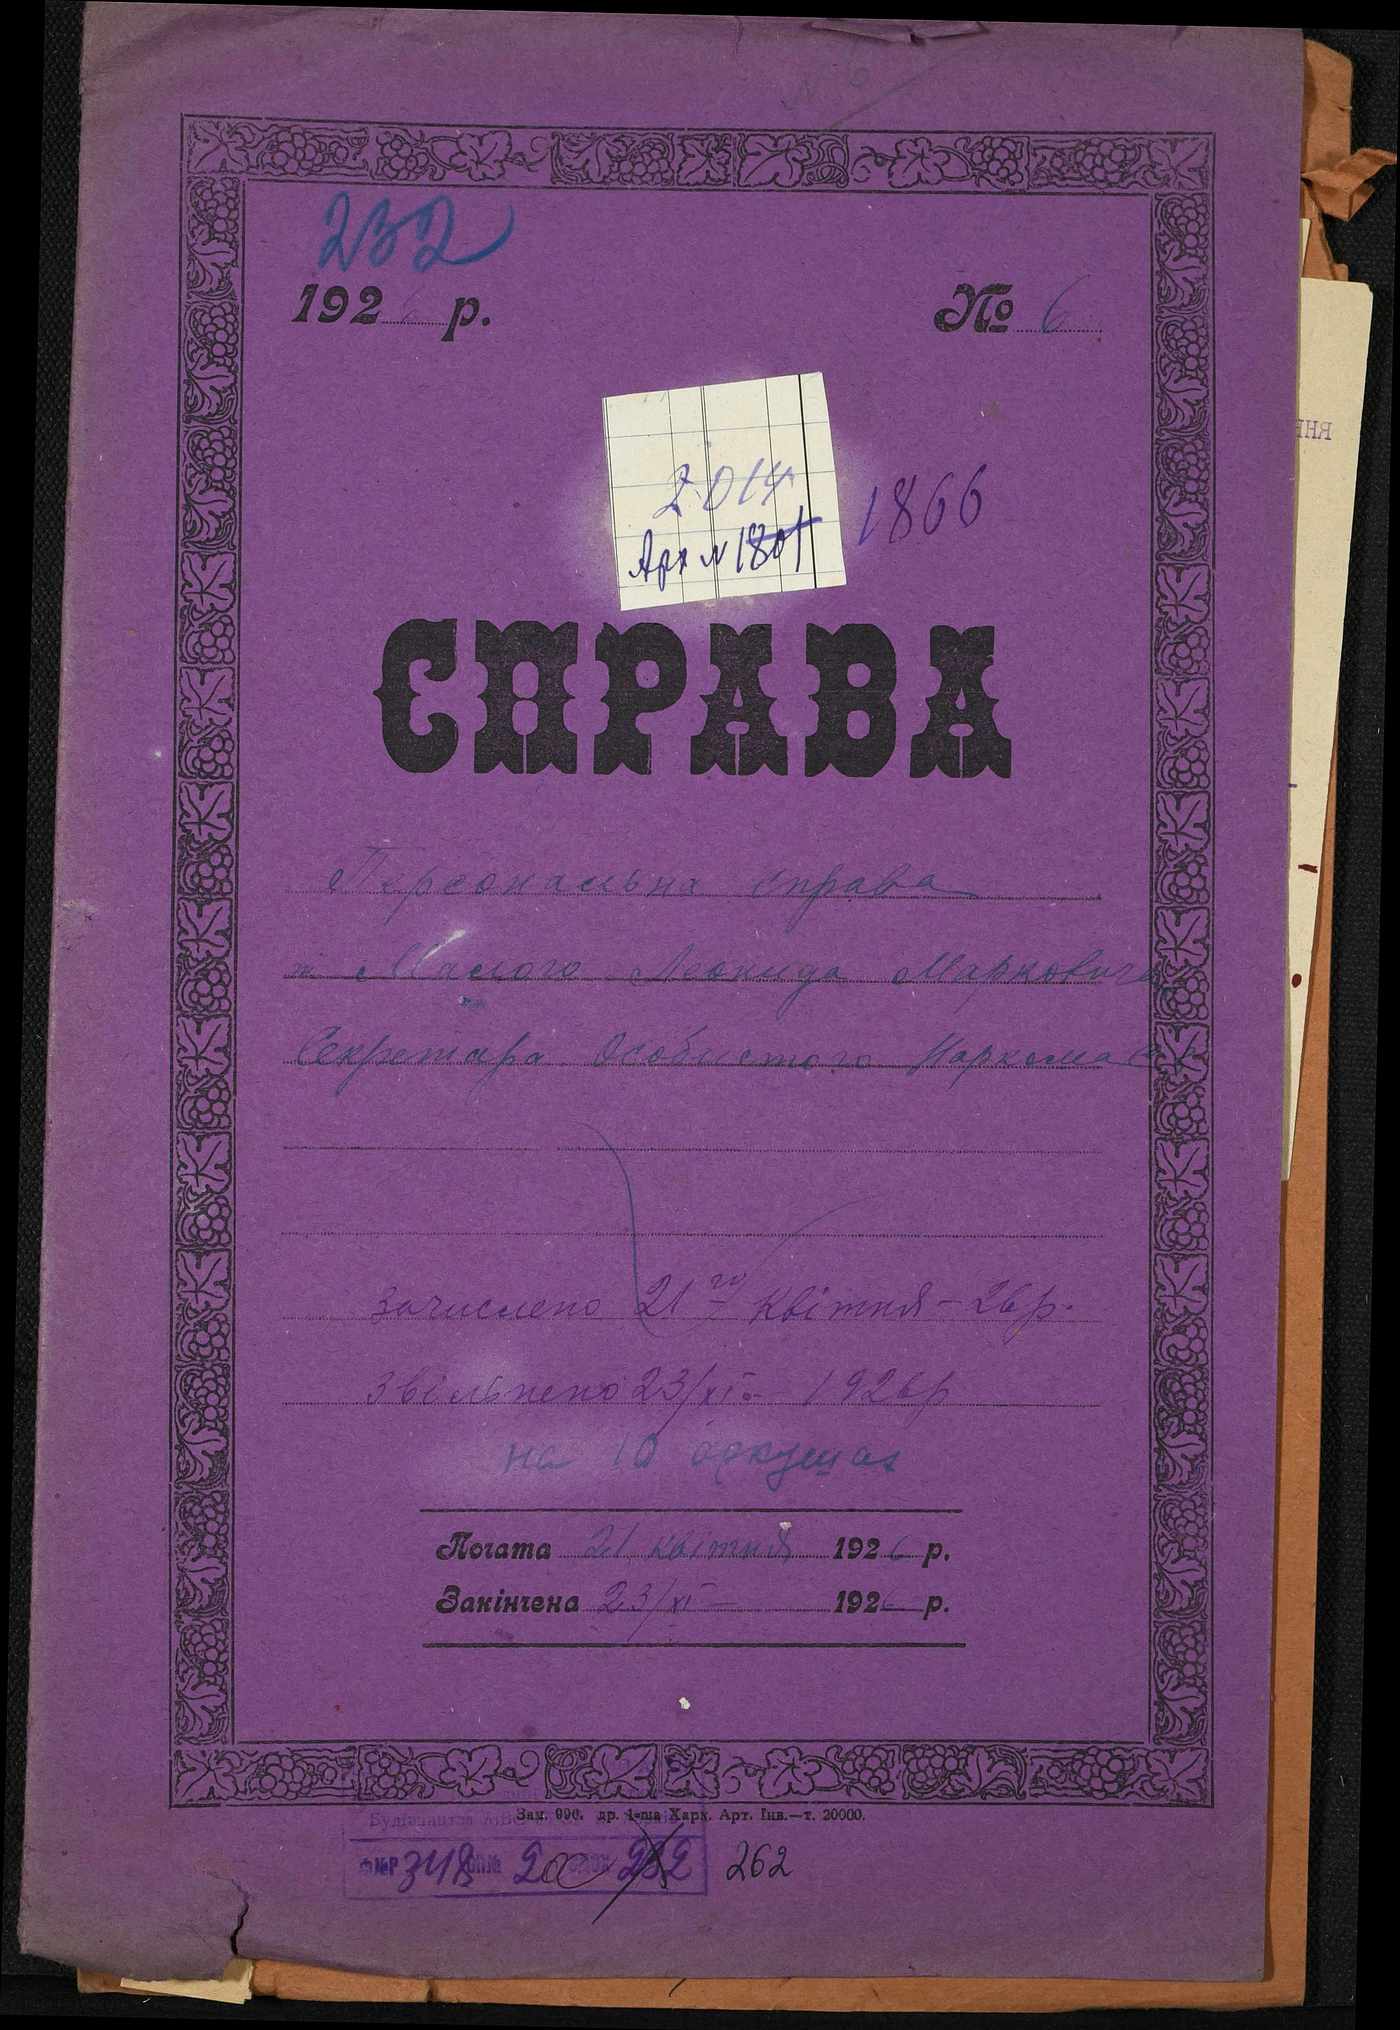 232
1926 р.
№ 6
2014
Арх № 1801
1866
СПРАВА
Персональна справа
т. Милого Леонида Марковича
Секретаря Особистого Наркома
Зачислено 21го квітня - 26 р.
Звільнено 23/XI - 1926 р
на 10 аркушах
Почата 21 квітня 1926 р.
Закінчена 23/XI - 1926 р.
Зам. 996. др. 1-ша Харк. Арт. Інв.—т. 20000.
Будівництва
Ф №Р 348 232 262